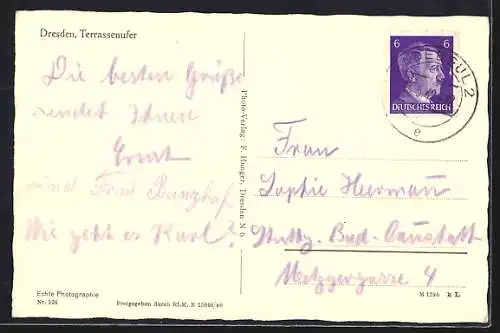 Dresden, Terrassenufer
Die besten Grüße
sendet Ihnen
Ernst
und Frau Banzhaf
Wie geht es Karl?
Photo-Verlag: F. Hunger, Dresden N 6
6 6
DEUTSCHES REICH
2
e
Frau
Sophie Hermann
Stuttg. Bad-Cannstatt
Metzgergasse 4
Echte Photographie
Nr. 326
Freigegeben durch RLM.
M 1295 RL